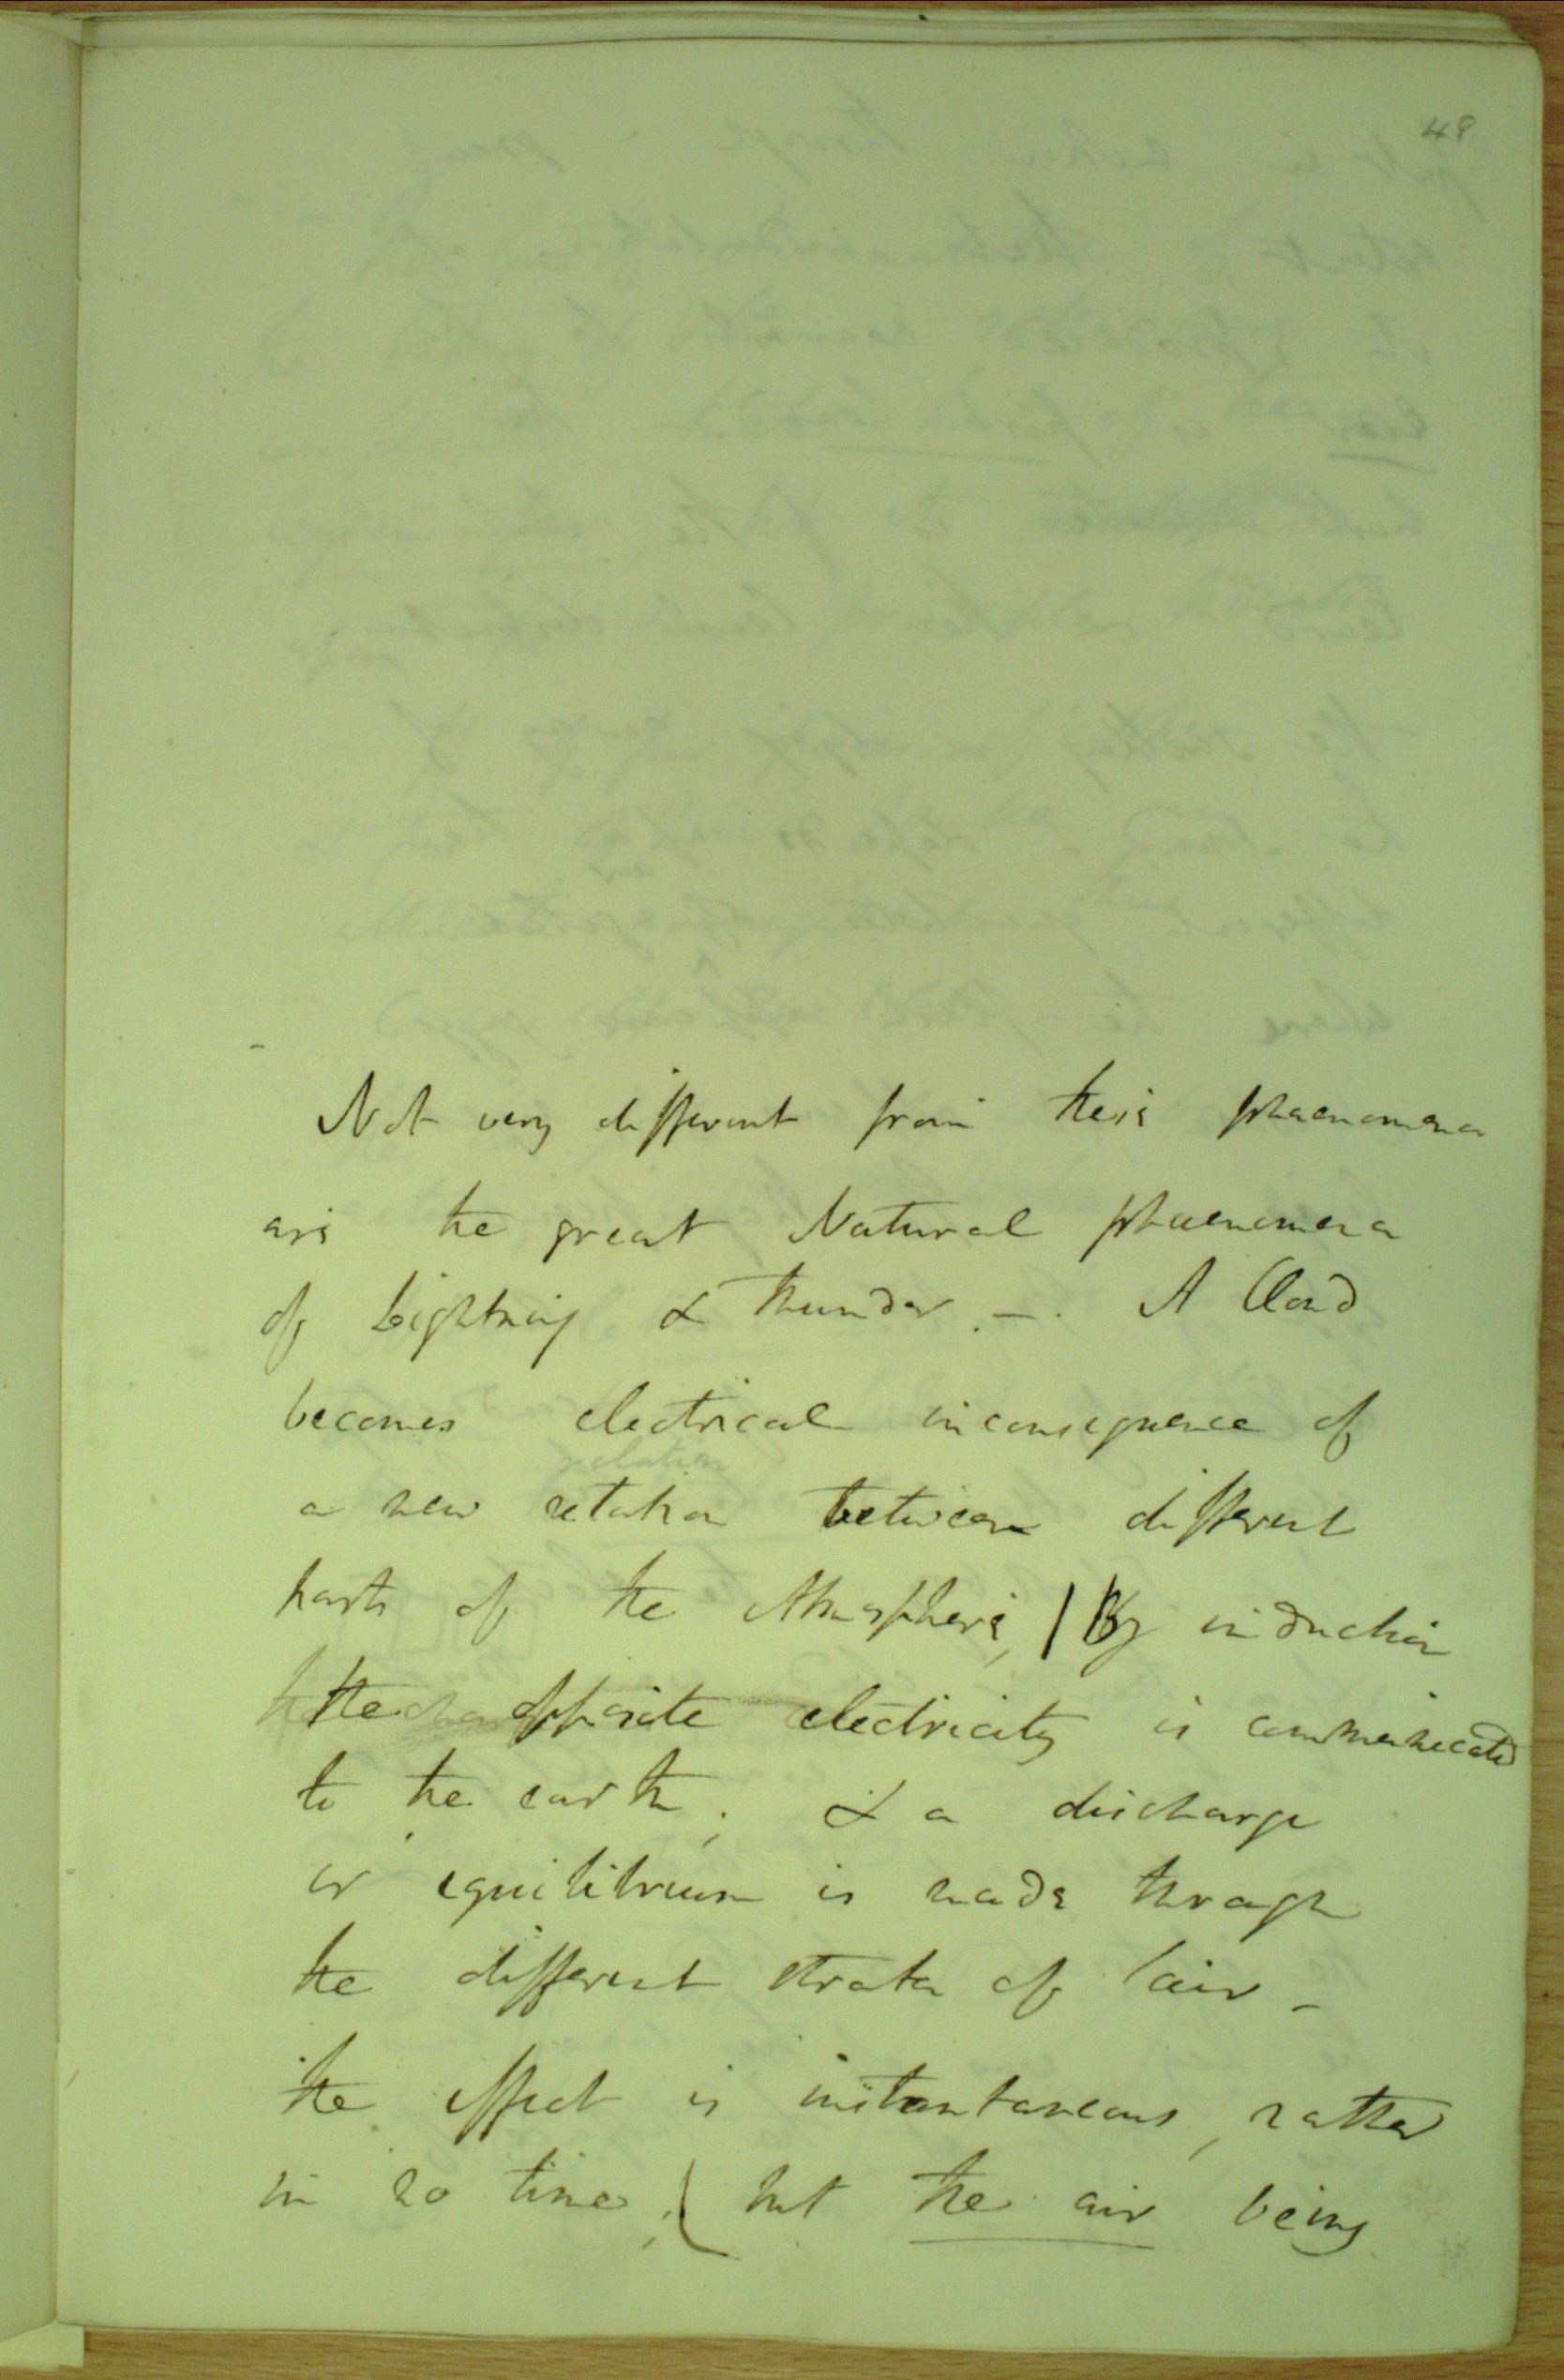 48
Not very different from these phaenomena
are the great Natural phaenomena
of Lightning & Thunder. –. A Cloud
becomes electrical in consequence of
relation
a new relation between different
parts of the Atmosphere, | By induction
the opposite electricity is communicated
to the earth; & a discharge
or equilibrium is made through
the different strata of air –
the effect is instantaneous, rather
in no time; ( but the air being